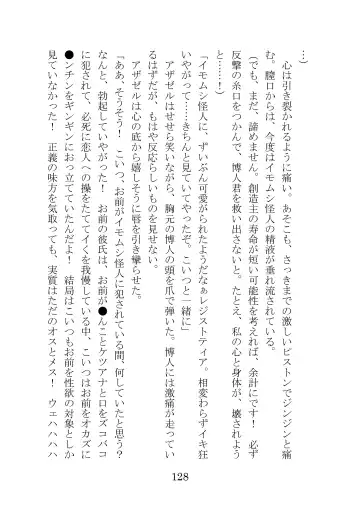 …）
　心は引き裂かれるように痛い。あそこも、さっきまでの激しいピストンでジンジンと痛
む。膣口からは、今度はイモムシ怪人の精液が垂れ流されている。
（でも、まだ、諦めません。創造主の寿命が短い可能性を考えれば、余計にです！　必ず
反撃の糸口をつかんで、博人君を救い出さないと。たとえ、私の心と身体が、壊されよう
と……！）
「イモムシ怪人に、ずいぶん可愛がられたようだなぁレジスティア。相変わらずイキ狂
いやがって……きちんと見ていてやったぞ。こいつと一緒に」
　アザゼルはせせら笑いながら、胸元の博人の頭を爪で弾いた。博人には激痛が走ってい
るはずだが、もはや反応らしいものを見せない。
　アザゼルは心の底から嬉しそうに唇を引き攣らせた。
「ああ、そうそう！　こいつ、お前がイモムシ怪人に犯されている間、何していたと思う？
なんと、勃起していやがった！　お前の彼氏は、お前が●んことケツアナと口をズコバコ
に犯されて、必死に恋人への操をたててイクを我慢している中、こいつはお前をオカズに
●ンチンをギンギンにおっ立てていたんだよ！　結局はこいつもお前を性欲の対象としか
見ていなかった！　正義の味方を気取っても、実質はただのオスとメス！　ウェハハハハ
128